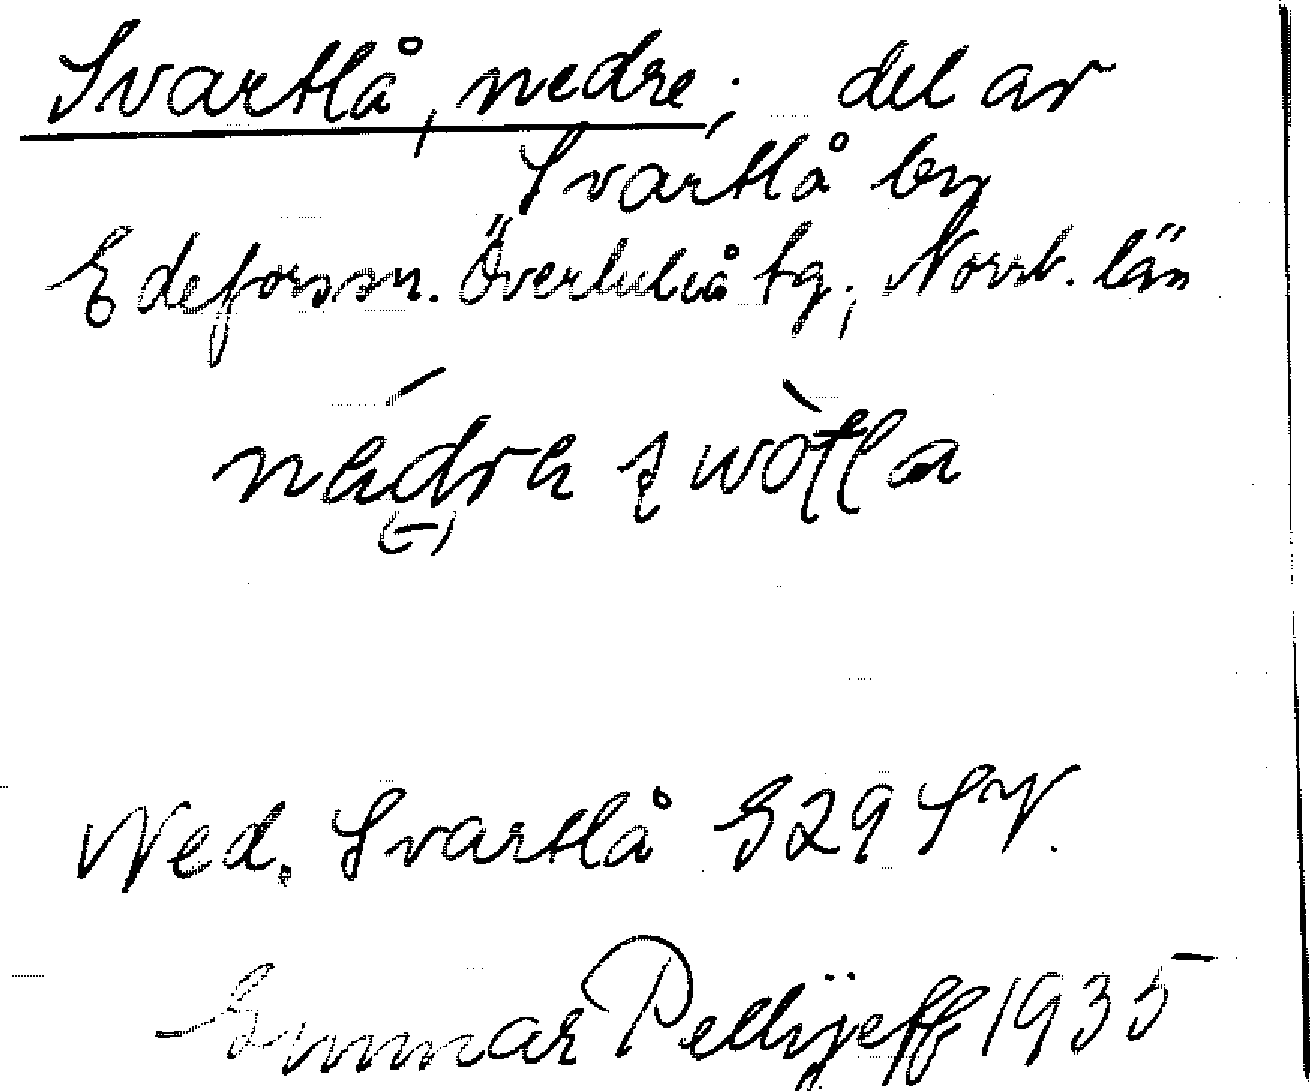 Svartlå, nedre; del av
Svartlå by
Edeforssn. Överluleå tg., Norrb. län
Ned. Svartlå G29 SV.
Gunnar Pellijeff 1935